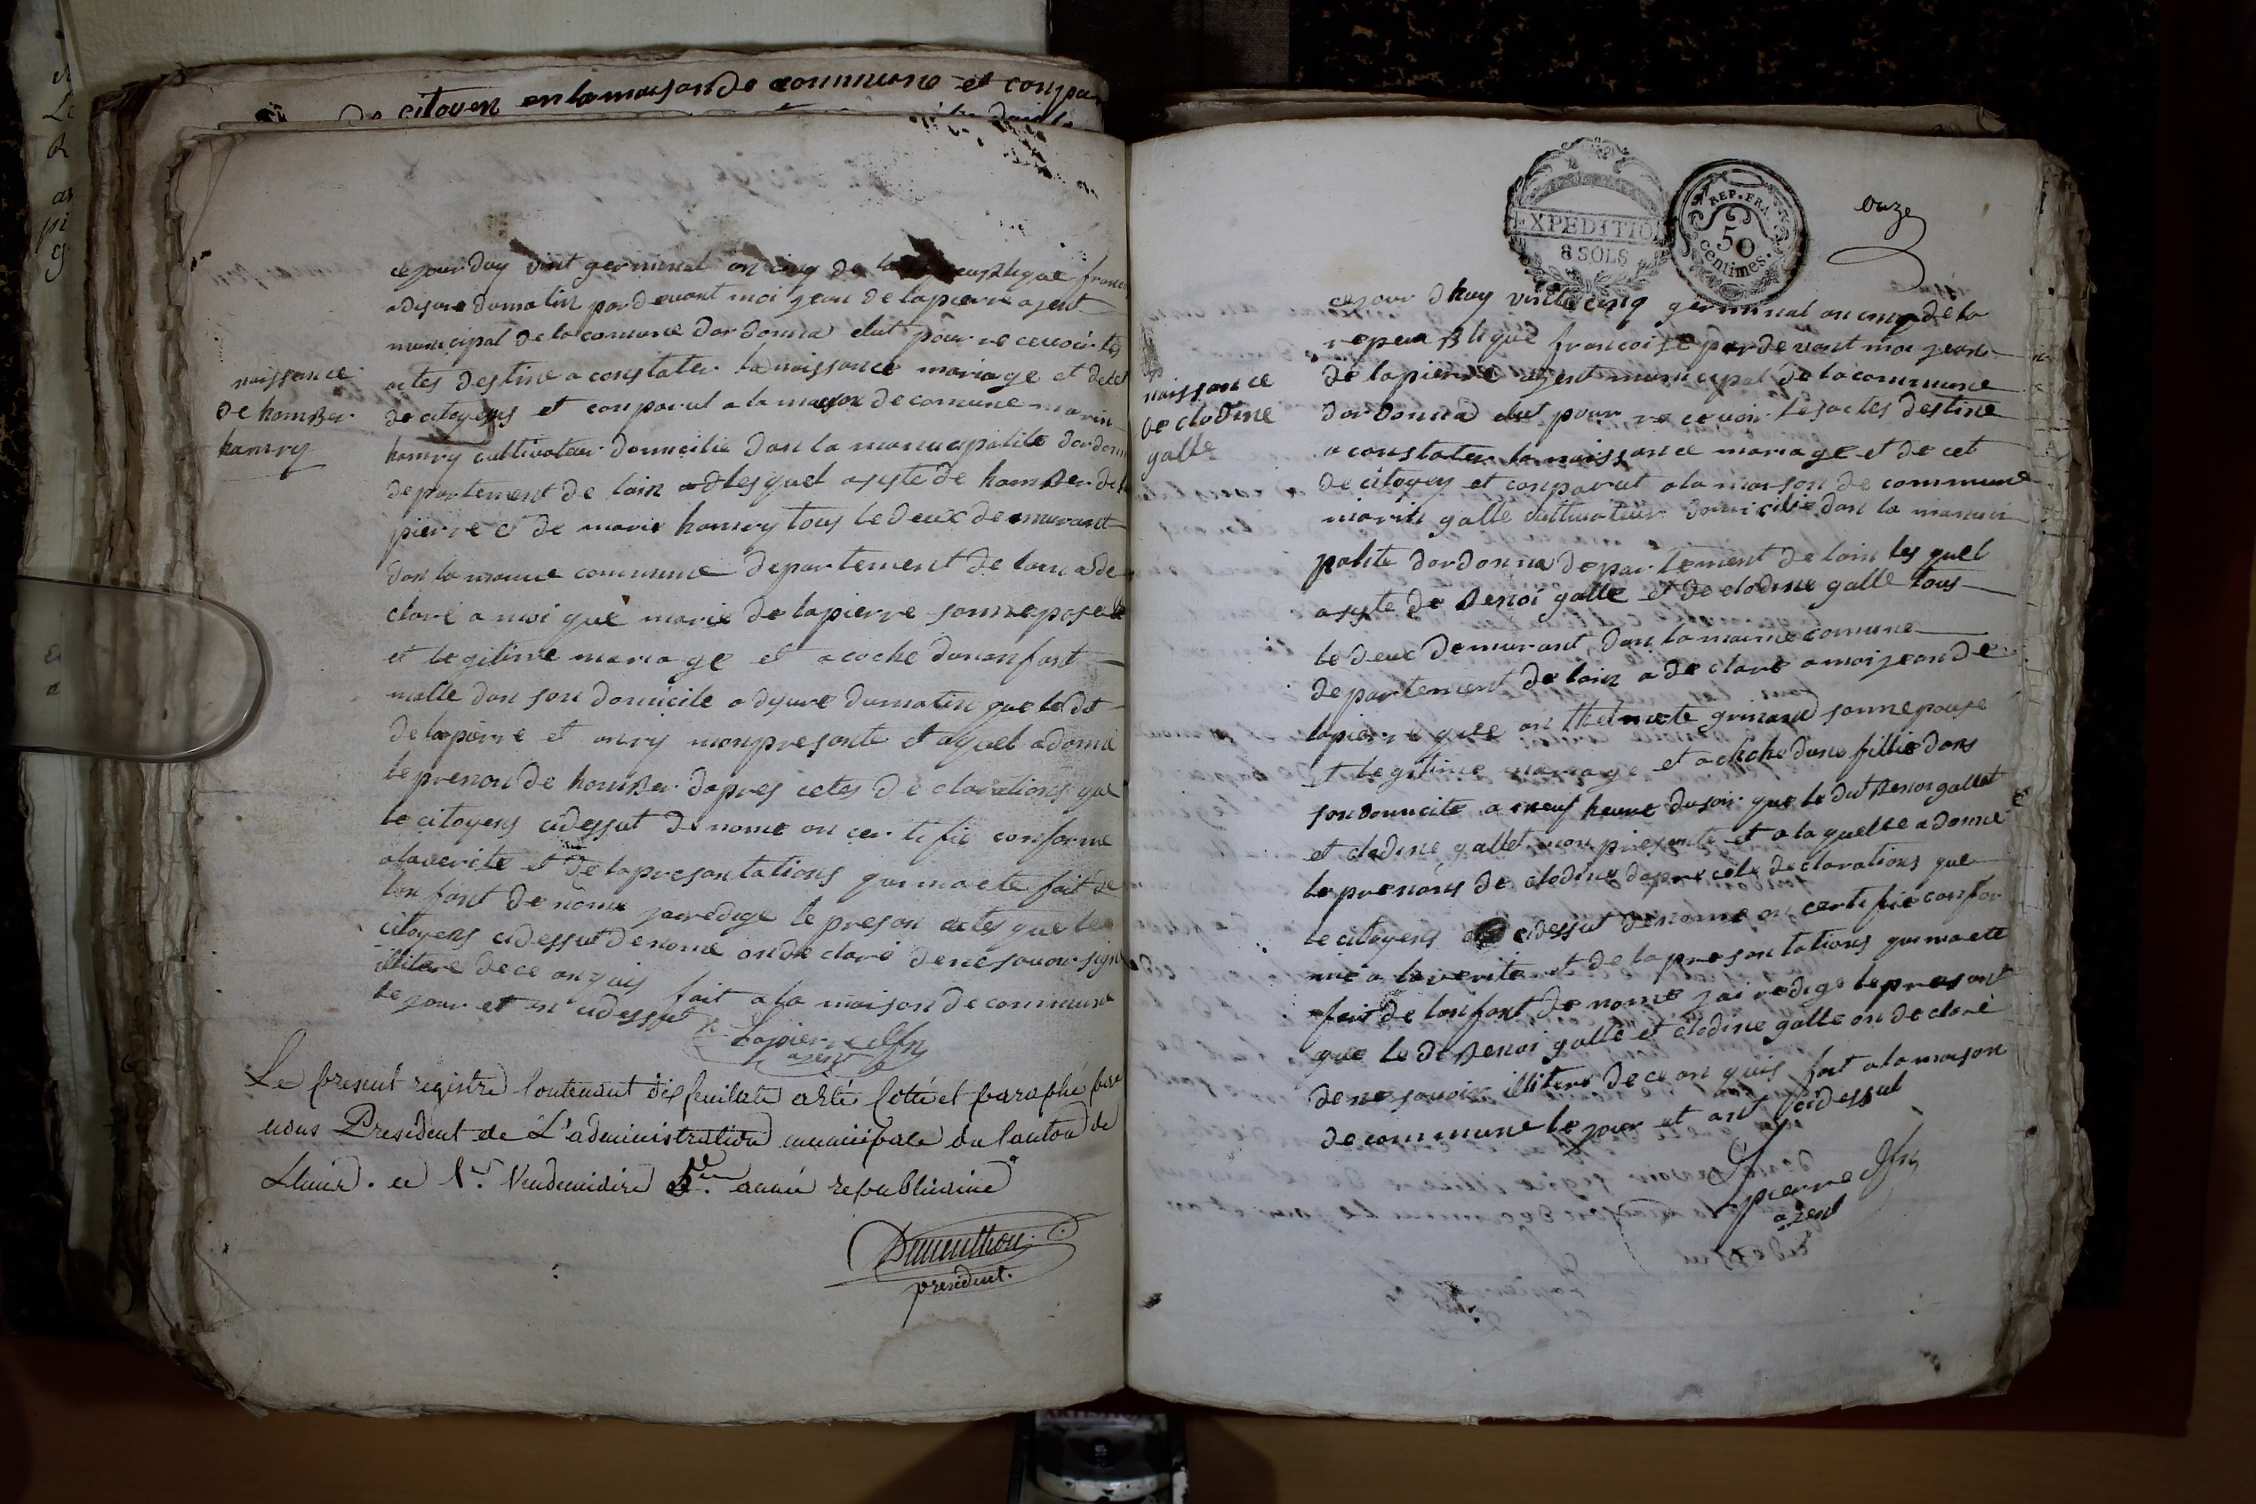 de citoyen en la maison de commune et conpar
naissance
de homber
hamry
ce jour duy vint germinal an cinq de la republique franc
a dijeure du matin par devant moi jean de lapierre ajent
municipal de la comune dordonna elut pour re cevoir les
actes destine a constater la naissance mariage et decet
de citoyens et conparut a la maison de comune marin
hamry cultivateur domicilie dan la manucipalite dordonn
departement de lain lesquel asyste de homber de la
pierre et de marie hamry tous le deux demurant
dan la maime commune departement de lain a de
claré a moi que marie de lapierre sonnepose de
et legitime mariage et acoche dunanfant
malle dan son domicile a dijeure dumatin que le dit
de lapierre et anry mon presante et aquel a donné
le prenon de homber dapres cetes de clarations que
le citoyens cidessut de nome on cer tifie conforme
a laverite et de la presantations qui ma ete fait de
lan fant de nome jai redige le preson actes que les
citoyens cidessut denome on de claré de ne savoir sign
illitere de ce anquis fait a la maison de commune
le jour et an cidessut
Lapierre
agent
Le present registre Contenant dix feuillets a été Cotté et paraphé par
nous President de L'administration municipale du Canton de
Lhuis. ce 1.er Vendemiaire 5.e année republicaine
president.
EXPEDITION
8 SOLS
REP. FRA.
50
centimes.
onze
naissance
de clodine
galle
ce jour dhuy vint cinq germinal an cinq de la
repeu blique francoise par devant moi jean
de lapierre agent municipal de la commune
dordonna elut pour re cevoir les actes destine
a constater la naissance mariage et de cet
de citoyen et conparut a la maison de commune
marin galle cultivateur domicilie dan la manuci
palite dordonna departement de lain les quel
asyste de Benoi galle et de clodine galle tous
le deux demurant dan la maime comune
departement de lain a de clare a moi jean de
lapierre que an thelmete guinand sonnepouse
et legitime mariage et acliche dune fillie dans
son domicile a neuf heure dusoir que le dit Benoi gallet
et clodine gallet mon presente et a la quelle a donné
le prenons de clodine dapre cete declarations que
le citoyens cidessut denome on certifie confor
me a laverite et de la presontations qui ma ete
fait de lanfant de nome jai redige lepresont
que le di Benoi galle et clodine galle on declaré
de ne savoir illitere de ce anquis fait a la maison
de commune le jour et ant cidessut
Lapierre
agent